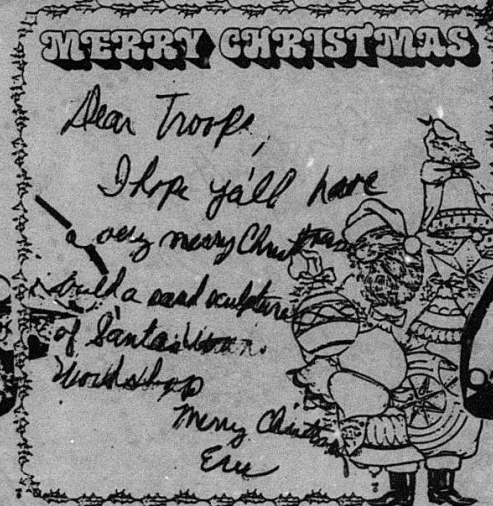 MERRY CHRISTMAS
Dear Troops,
I hope ya'll have
a very merry Christmas
build a sand sculpture
of Santa's
Workshop
Merry Christmas
Eric